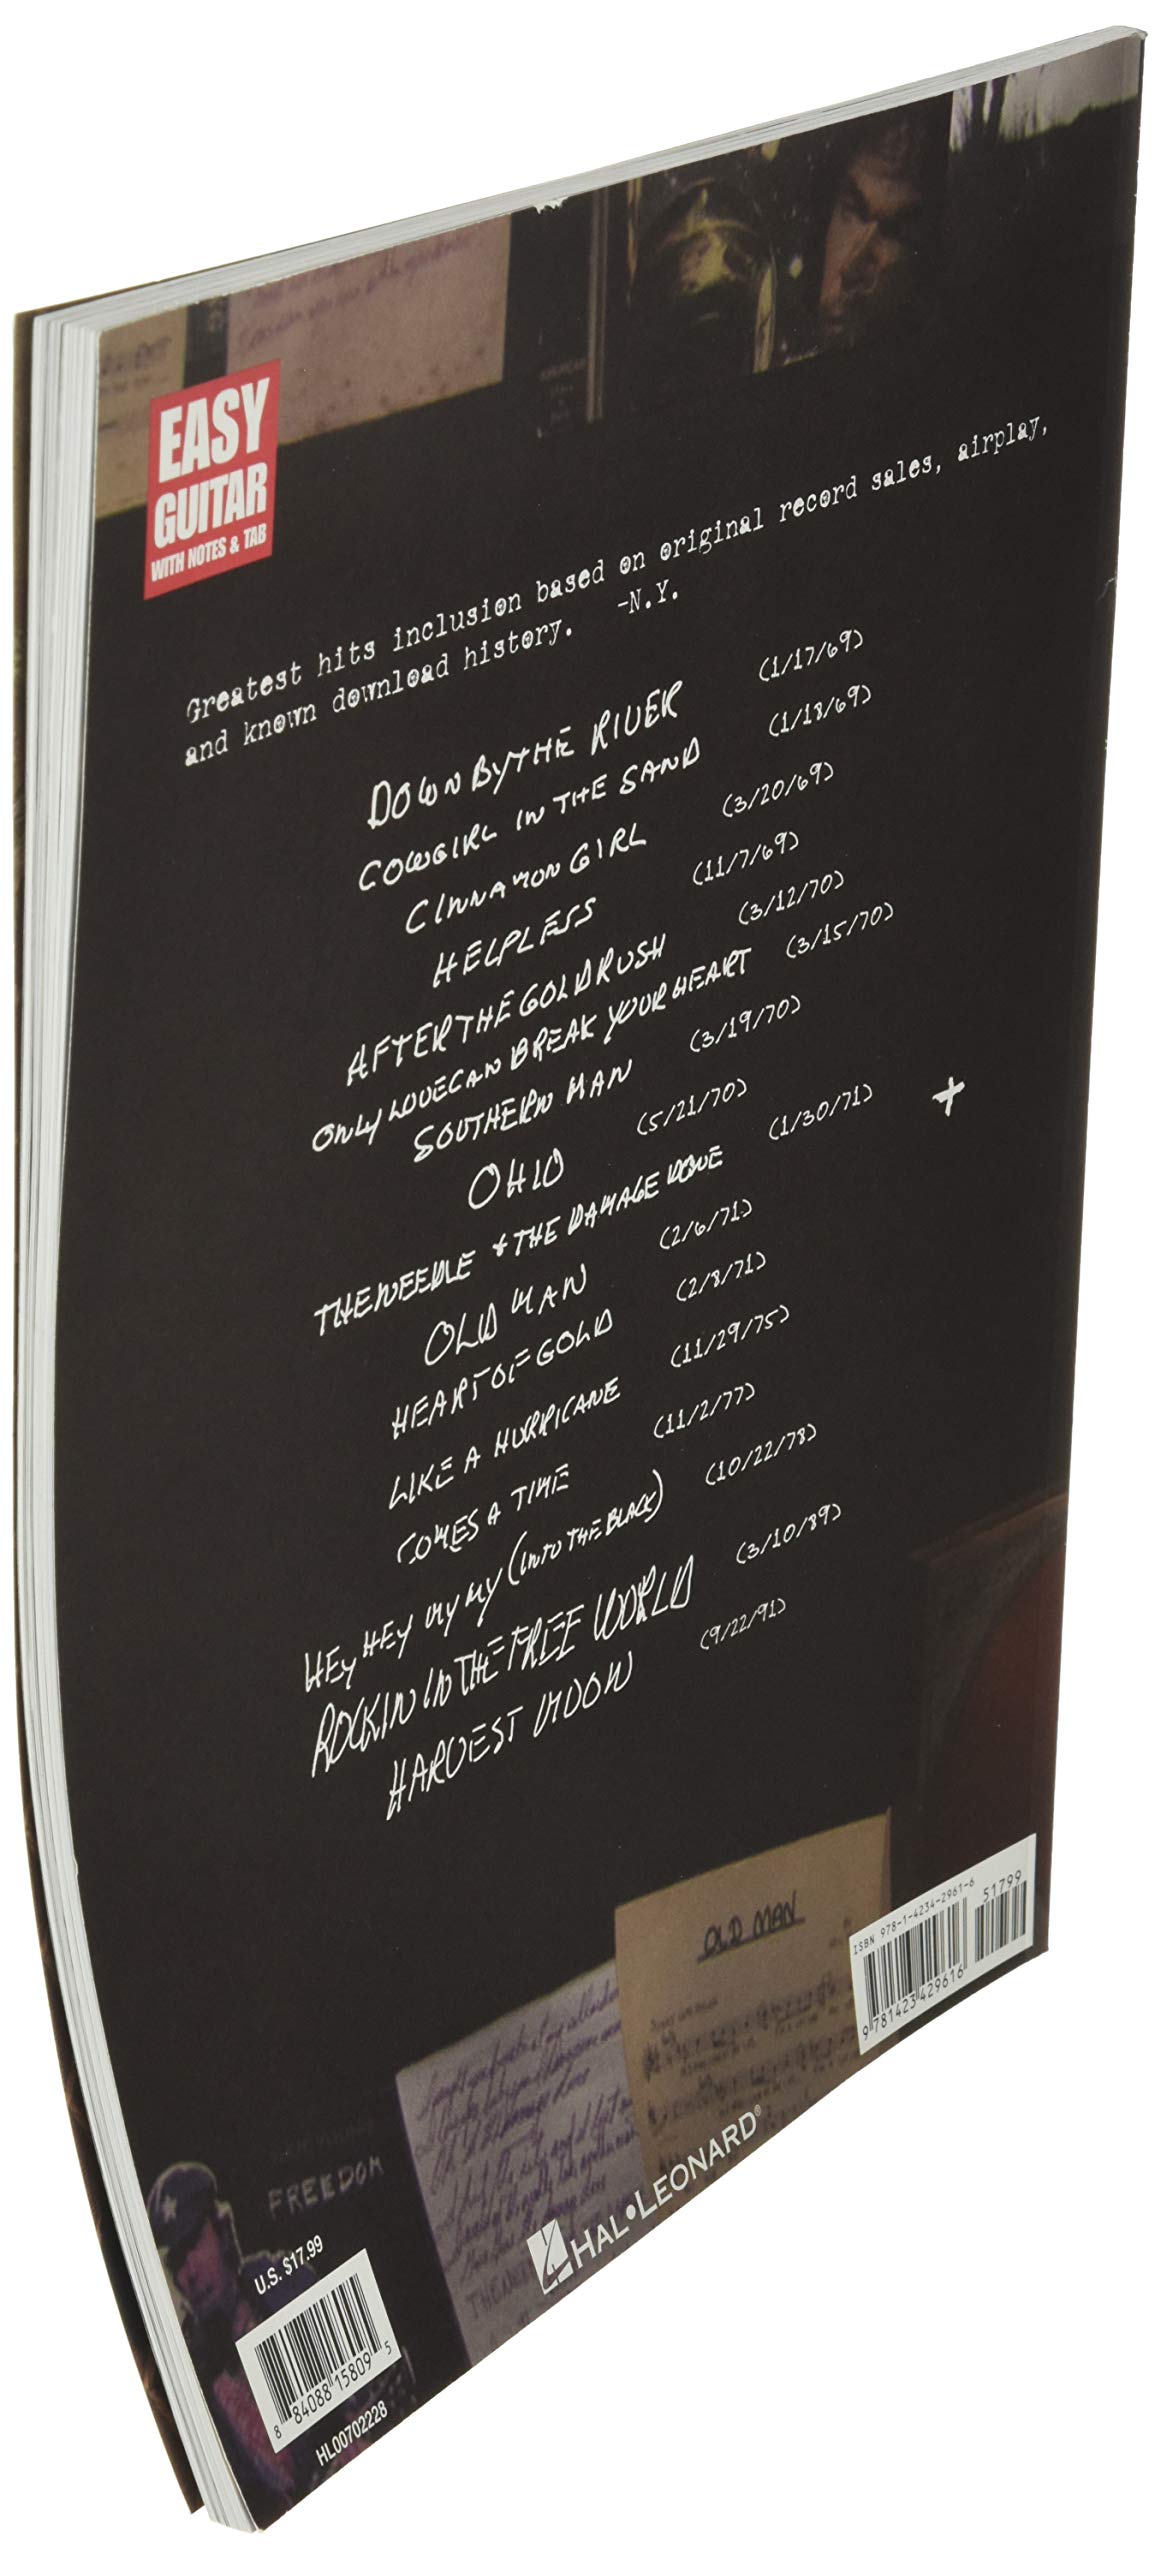 EASY
GUITAR
WITH NOTES & TAB
Greatest hits inclusion based on original record sales, airplay,
and known download history. -N.Y.
DOWN BY THE RIVER (1/17/69)
COWGIRL IN THE SAND (1/18/69)
CINNAMON GIRL (3/20/69)
HELPLESS (11/7/69)
AFTER THE GOLD RUSH (3/12/70)
ONLY LOVE CAN BREAK YOUR HEART (3/15/70)
SOUTHERN MAN (3/19/70)
OHIO (5/21/70)
THE NEEDLE + THE DAMAGE DONE (1/30/71) +
OLD MAN (2/6/71)
HEART OF GOLD (2/8/71)
LIKE A HURRICANE (11/29/75)
COMES A TIME (11/2/77)
HEY HEY MY MY (INTO THE BLACK) (10/22/78)
ROCKIN IN THE FREE WORLD (3/10/89)
HARVEST MOON (9/22/91)
OLD MAN
ISBN 978-1-4234-2961-6
51799
9 781423 429616
FREEDOM
HAL•LEONARD®
U.S. $17.99
8 84088 15809 5
HL00702228